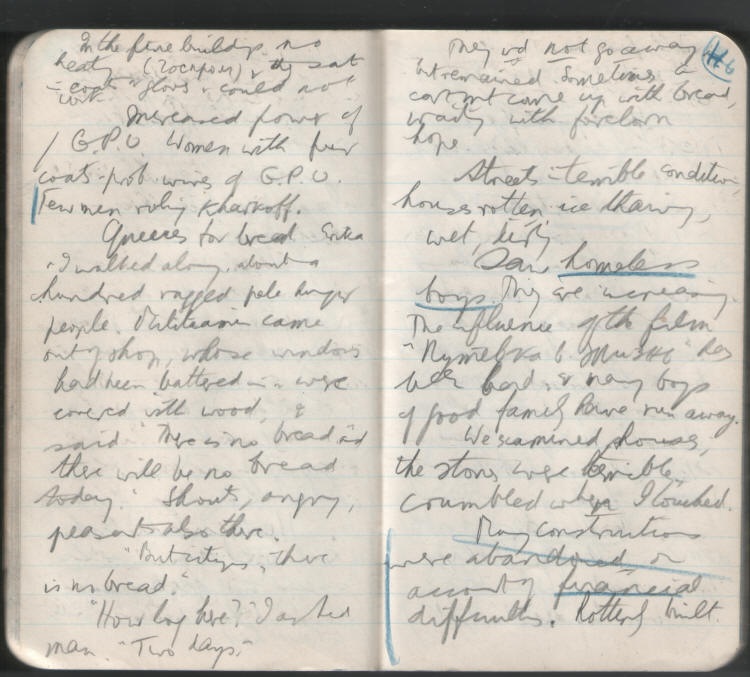 In the fine buildings no
heating (Госпром) & they sat
in coats & gloves & could not
work.
Increased power of
G.P.U. Women with fur
coats prob. wives of G.P.U.
Few men ruling Kharkoff.
Queues for bread. Erika
& I walked along. about a
hundred ragged pale hungry
people. Militiaman came
out of shop, whose windows
had been battered in & were
covered with wood, &
said "There is no bread and
there will be no bread
today." Shouts, angry,
peasants also there.
"But citizens, there
is no bread."
"How long here?" I asked
man. "Two days."
They wd not go away
but remained. Sometimes a
cart might come up with bread,
waiting with forlorn
hope
46
Streets terrible condition,
houses rotten, ice thawing,
wet, dirty.
Saw homeless
boys. They are increasing.
The influence of the film
"Путёвка в жизнь" has
been bad, & many boys
of good family have run away.
We examined houses,
the stones were terrible,
crumbled when I touched.
Many constructions
were abandoned on
account of financial
difficulties. Rottenly built.